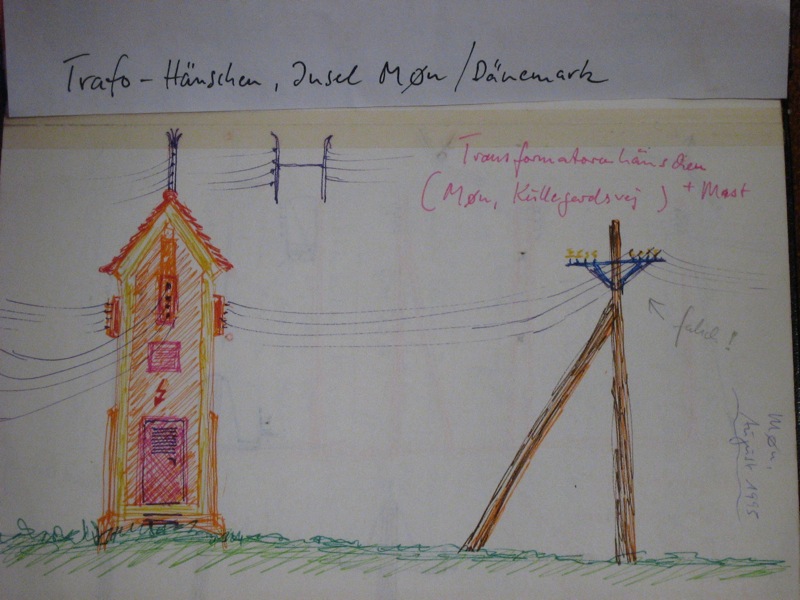 Trafo-Häuschen, Insel Møn/Dänemark
Transformatorenhäuschen
(Møn, Kullegardsvej) + Mast
falsch!
Møn,
August 1995